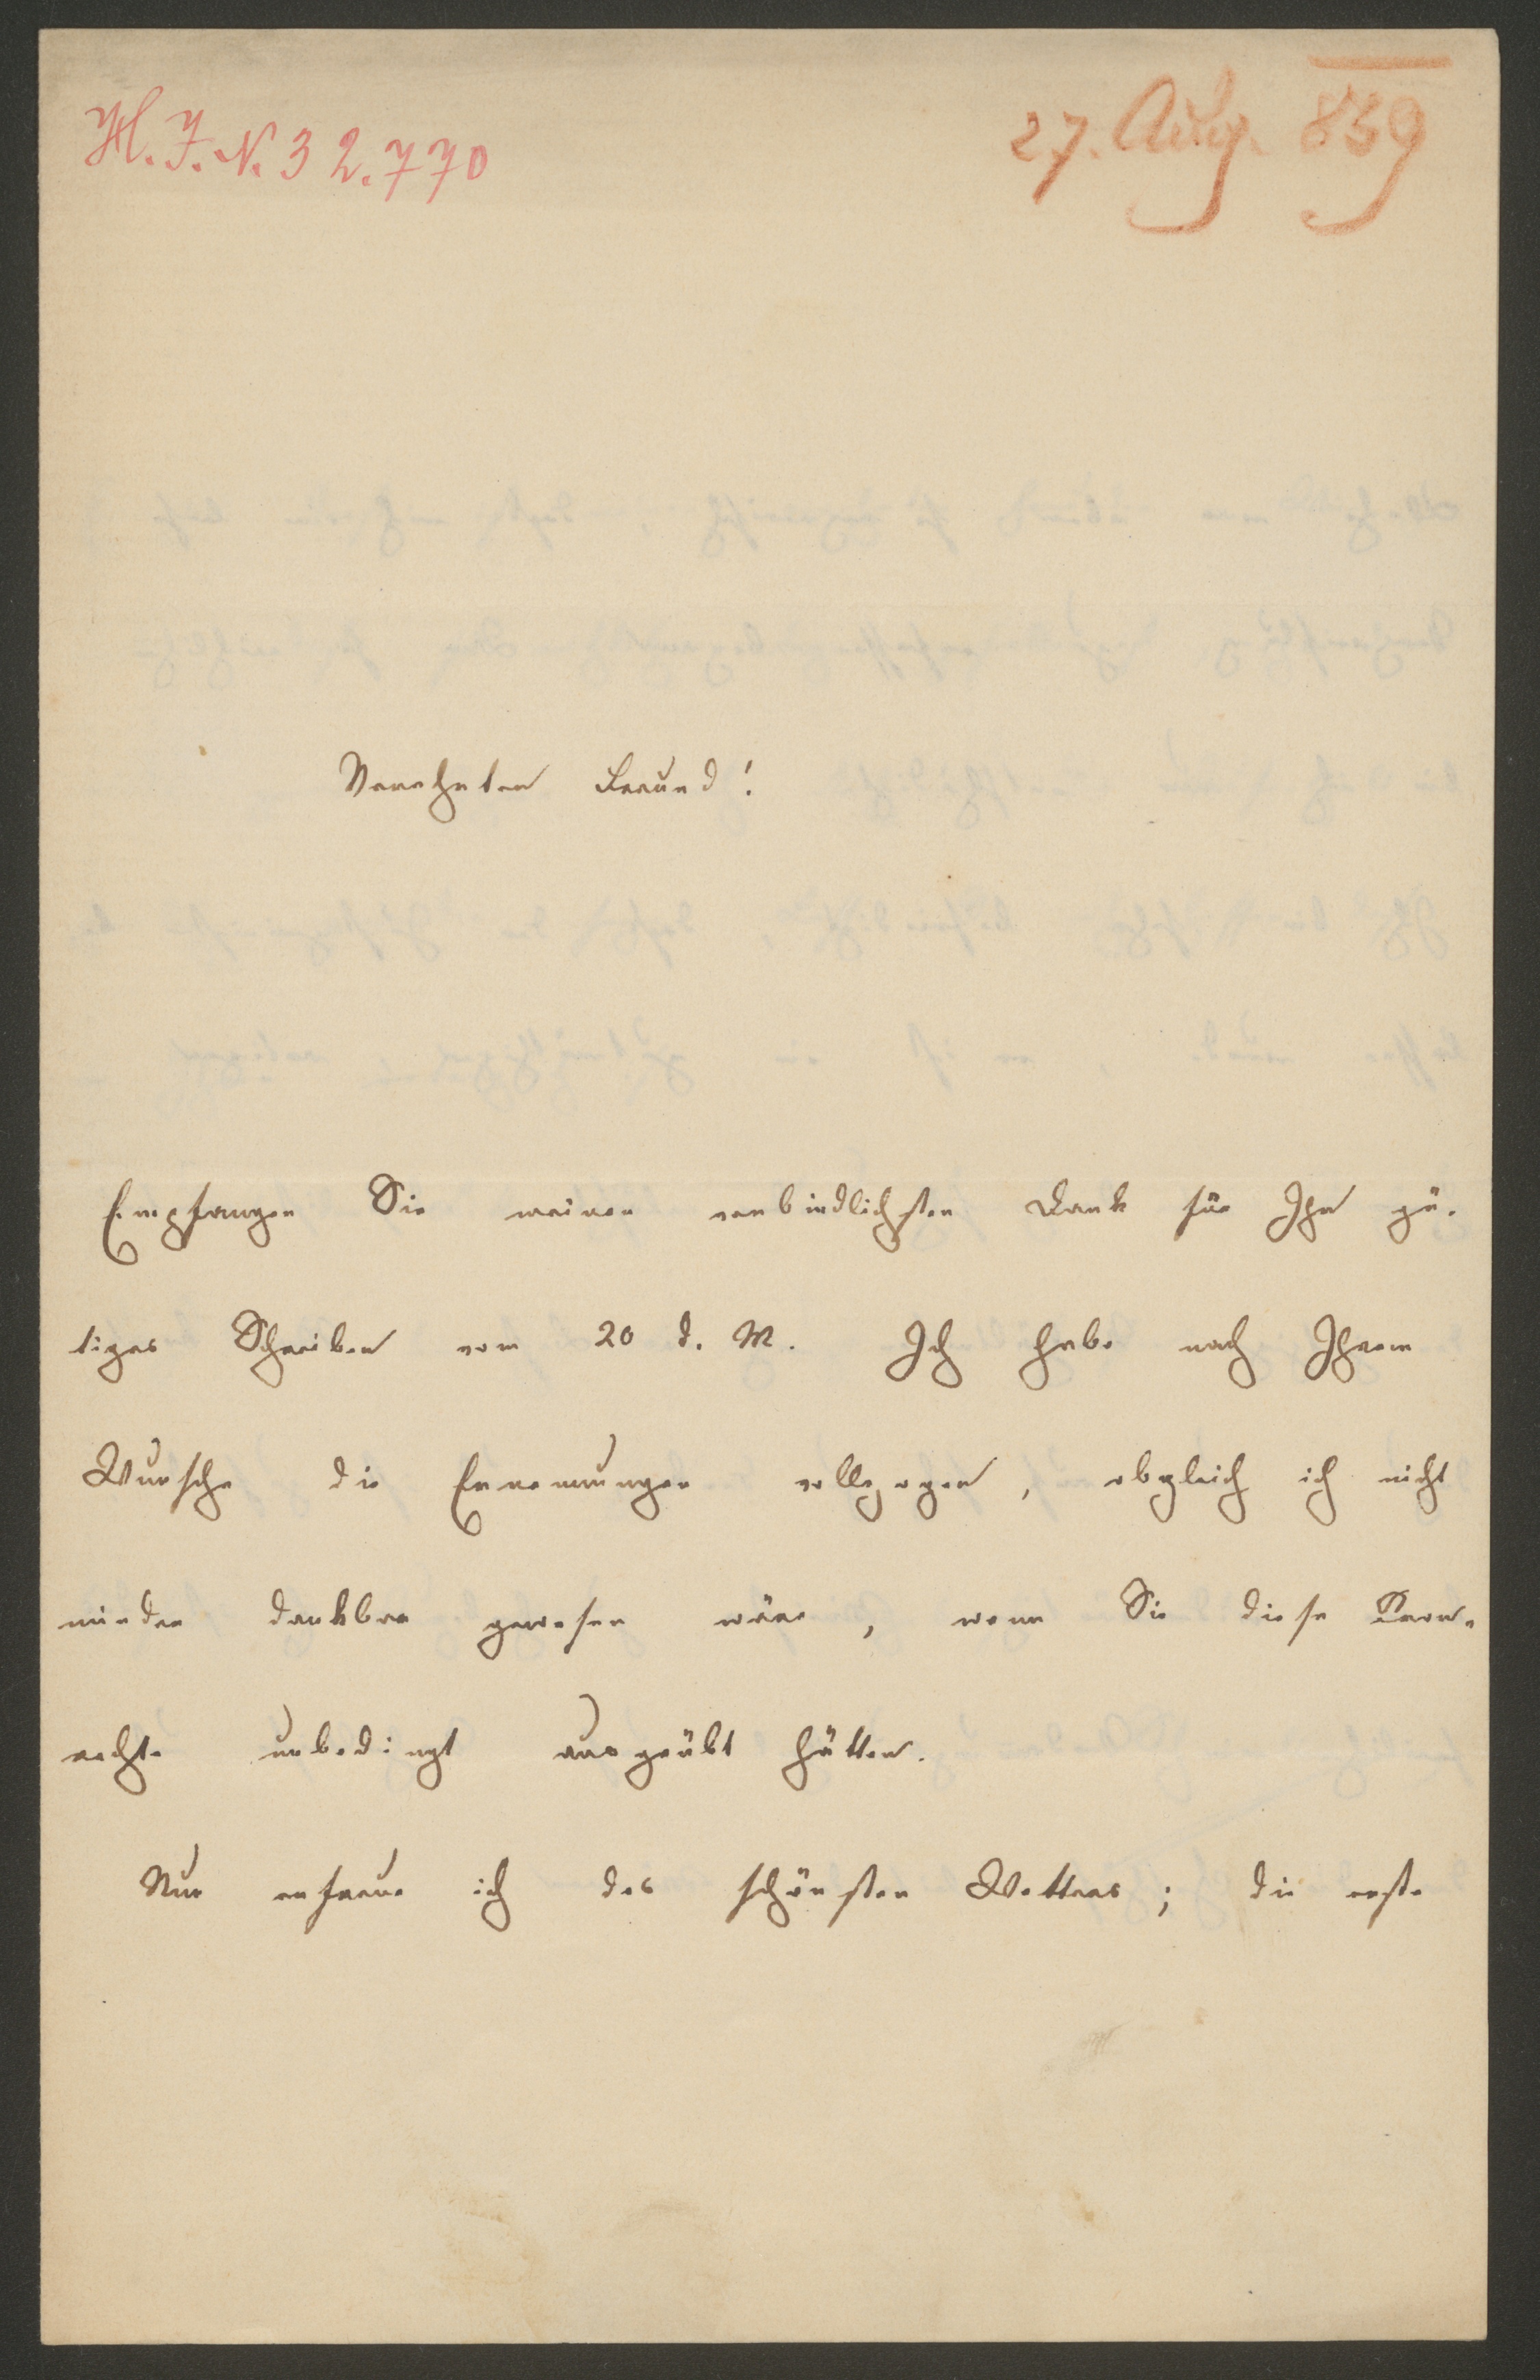 H. I. N. 32.770
27. Aug. 859
Verehrter Freund!
Empfangen Sie meinen verbindlichsten Dank für Ihr gü-
tiges Schreiben vom 20 d. M. Ich habe nach Ihrem
Wunsche die Ernennungen vollzogen, obgleich ich nicht
minder dankbar gewesen wäre, wenn Sie diese Kron-
rechte unbedingt ausgeübt hätten.
Nun erfreue ich des schönsten Wetters; die erste